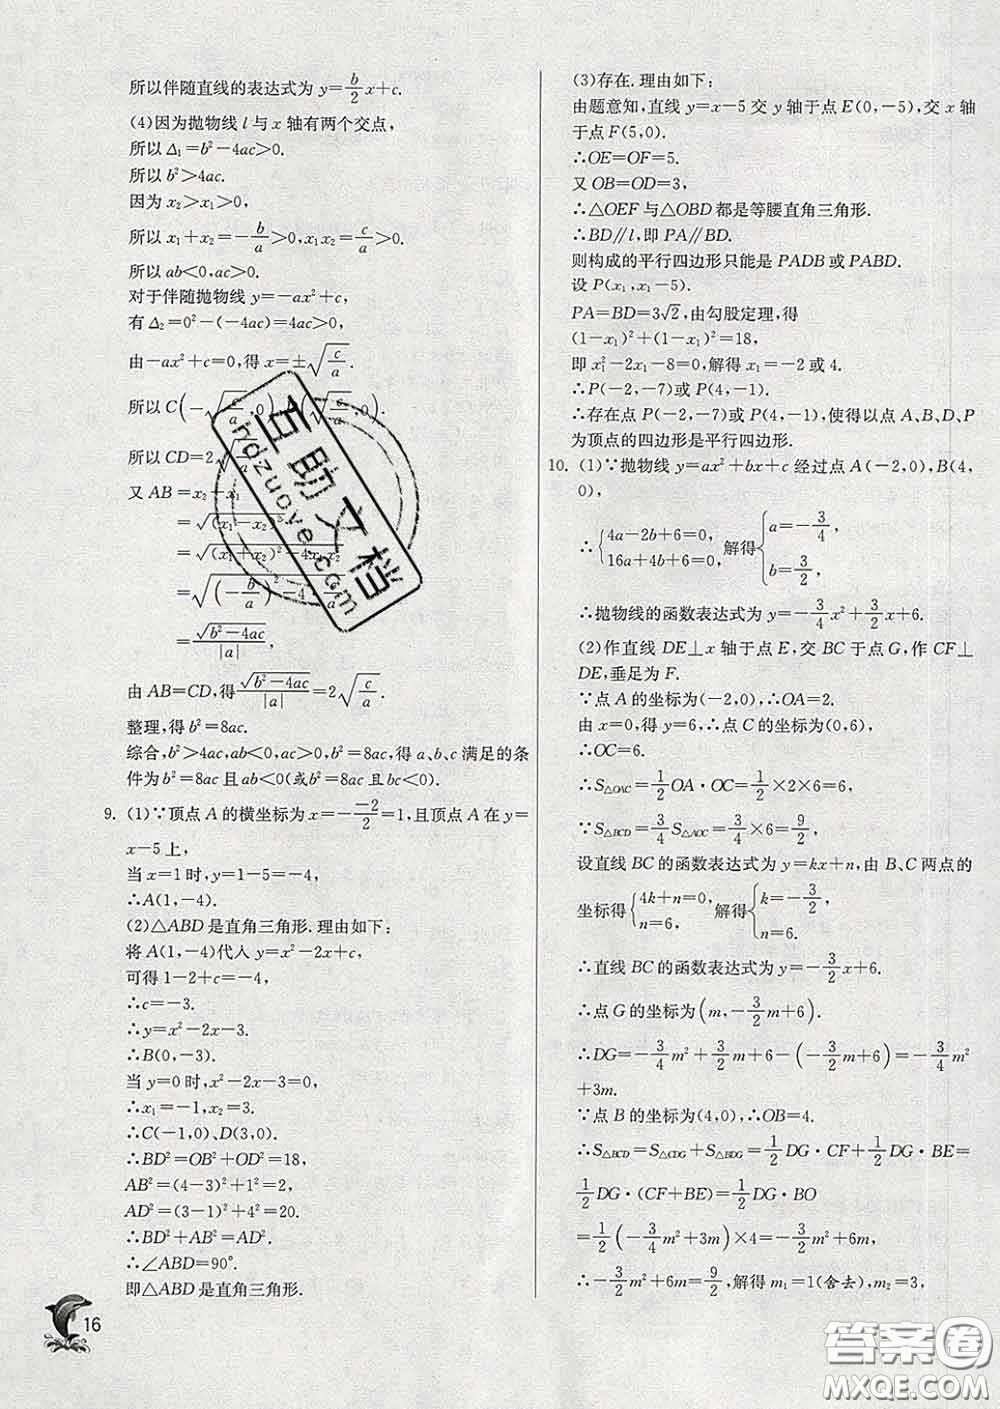 所以伴随直线的表达式为 y=b/2 x+c.
(4)因为抛物线 l 与 x 轴有两个交点,
所以 Δ₁=b²-4ac>0.
所以 b²>4ac.
因为 x₂>x₁>0,
所以 x₁+x₂=-b/a>0,x₁x₂=c/a>0.
所以 ab<0,ac>0.
对于伴随抛物线 y=-ax²+c,
有 Δ₂=0²-(-4ac)=4ac>0,
由-ax²+c=0,得 x=±√(c/a).
所以 C(-√(c/a),0)
所以 CD=2√(c/a)
又 AB=x₂-x₁
=√(x₁-x₂)²
=√((x₁+x₂)²-4x₁x₂)
=√((-b/a)²-4
=√(b²-4ac)/|a|,
由 AB=CD,得√(b²-4ac)/|a|=2√(c/a).
整理,得 b²=8ac.
综合,b²>4ac,ab<0,ac>0,b²=8ac,得 a、b、c 满足的条
件为 b²=8ac 且 ab<0(或 b²=8ac 且 bc<0).
9. (1)∵顶点 A 的横坐标为 x=-(-2)/2=1,且顶点 A 在 y=
x-5 上,
当 x=1 时,y=1-5=-4,
∴A(1,-4).
(2)△ABD 是直角三角形.理由如下:
将 A(1,-4)代入 y=x²-2x+c,
可得 1-2+c=-4,
∴c=-3.
∴y=x²-2x-3.
∴B(0,-3).
当 y=0 时,x²-2x-3=0,
∴x₁=-1,x₂=3.
∴C(-1,0)、D(3,0).
∴BD²=OB²+OD²=18,
AB²=(4-3)²+1²=2,
AD²=(3-1)²+4²=20.
∴BD²+AB²=AD².
∴∠ABD=90°.
即△ABD 是直角三角形.
16
(3)存在.理由如下:
由题意知,直线 y=x-5 交 y 轴于点 E(0,-5),交 x
轴于点 F(5,0).
∴OE=OF=5.
又 OB=OD=3,
∴△OEF 与△OBD 都是等腰直角三角形.
∴BD∥l,即 PA∥BD.
则构成的平行四边形只能是 PADB 或 PABD.
设 P(x₁,x₁-5).
PA=BD=3√2,由勾股定理,得
(1-x₁)²+(1-x₁)²=18,
即 x₁²-2x₁-8=0,解得 x₁=-2 或 4.
∴P(-2,-7)或 P(4,-1).
∴存在点 P(-2,-7)或 P(4,-1),使得以点 A、B、D、P
为顶点的四边形是平行四边形.
10. (1)∵抛物线 y=ax²+bx+c 经过点 A(-2,0),B(4,
0),
∴{4a-2b+6=0, 16a+4b+6=0, 解得{a=-3/4, b=3/2,
∴抛物线的函数表达式为 y=-3/4 x²+3/2 x+6.
(2)作直线 DE⊥x 轴于点 E,交 BC 于点 G,作 CF⊥
DE,垂足为 F.
∵点 A 的坐标为(-2,0),∴OA=2.
由 x=0,得 y=6,∴点 C 的坐标为(0,6),
∴OC=6.
∴S△OAC=1/2 OA·OC=1/2×2×6=6.
∵S△BCD=3/4 S△AOC=3/4×6=9/2,
设直线 BC 的函数表达式为 y=kx+n,由 B、C 两点的
坐标得{4k+n=0, n=6. 解得{k=-3/2, n=6.
∴直线 BC 的函数表达式为 y=-3/2 x+6.
∴点 G 的坐标为(m,-3/2 m+6).
∴DG=-3/4 m²+3/2 m+6-(-3/2 m+6)=-3/4 m²
+3m.
∵点 B 的坐标为(4,0),∴OB=4.
∴S△BCD=S△CDG+S△BDG=1/2 DG·CF+1/2 DG·BE=
1/2 DG·(CF+BE)=1/2 DG·BO
=1/2(-3/4 m²+3m)×4=-3/2 m²+6m,
∴-3/2 m²+6m=9/2,解得 m₁=1(舍去),m₂=3,
互助文档
hydzuoye.com
答案圈
MXQE.COM